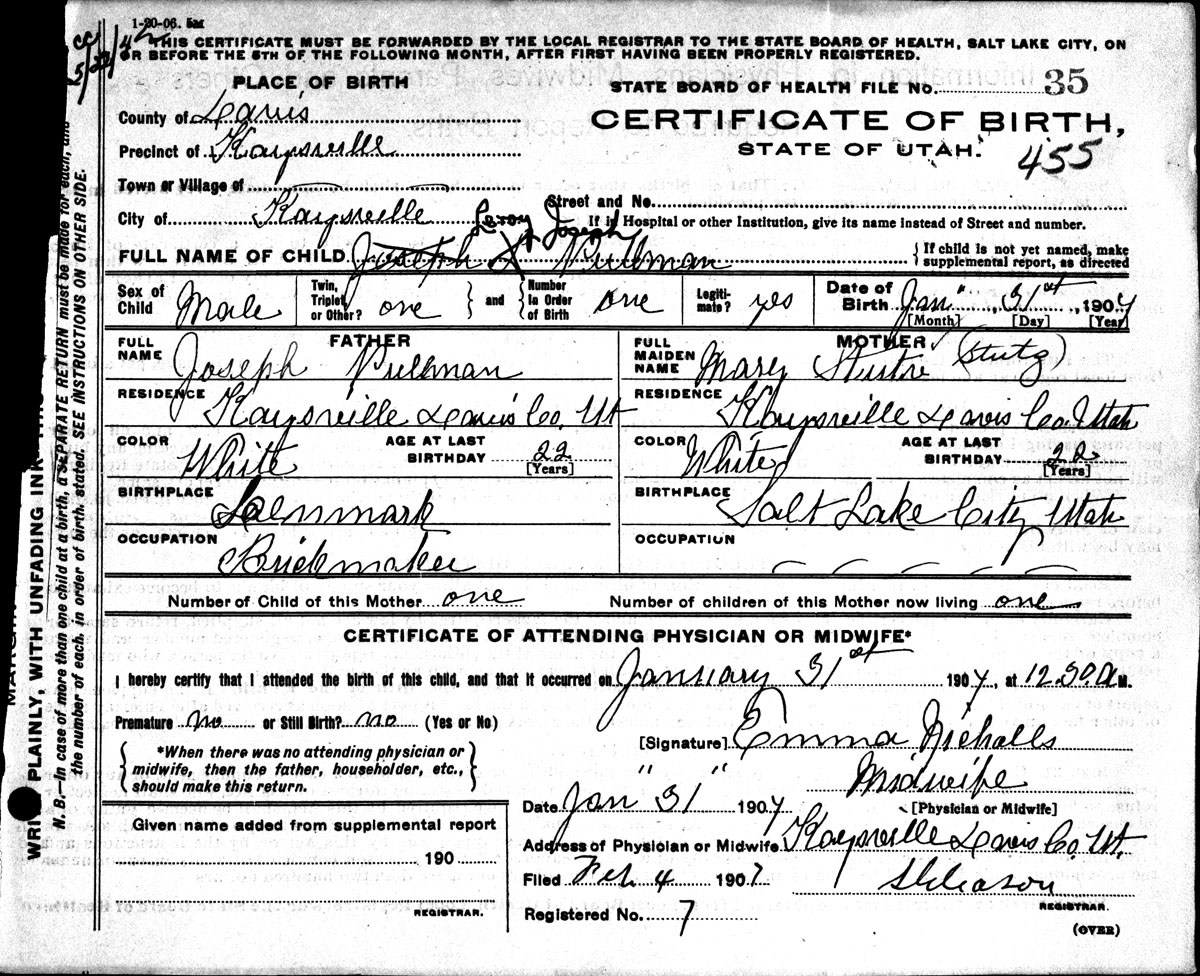 1-20-06. 5M
THIS CERTIFICATE MUST BE FORWARDED BY THE LOCAL REGISTRAR TO THE STATE BOARD OF HEALTH, SALT LAKE CITY, ON
OR BEFORE THE 5TH OF THE FOLLOWING MONTH, AFTER FIRST HAVING BEEN PROPERLY REGISTERED.
PLACE OF BIRTH
STATE BOARD OF HEALTH FILE No. 35
County of Davis
CERTIFICATE OF BIRTH,
Precinct of Kaysville
STATE OF UTAH. 455
Town or Village of
Street and No.
City of Kaysville
If in Hospital or other Institution, give its name instead of Street and number.
Leroy Joseph
FULL NAME OF CHILD Joseph L Pullman
If child is not yet named, make supplemental report, as directed
Sex of Child Male Twin, Triplet, or Other? one and Number in Order of Birth one Legitimate? yes Date of Birth Jan" 31st 1907
[Month] [Day] [Year]
FATHER
FULL NAME Joseph Pullman
RESIDENCE Kaysville Davis Co. Ut
COLOR White AGE AT LAST BIRTHDAY 22 [Years]
BIRTHPLACE Denmark
OCCUPATION Brickmaker
MOTHER
FULL MAIDEN NAME Mary (Stutz)
RESIDENCE Kaysville Davis Co. Utah
COLOR White AGE AT LAST BIRTHDAY 22 [Years]
BIRTHPLACE Salt Lake City Utah
OCCUPATION
Number of Child of this Mother one Number of children of this Mother now living one
CERTIFICATE OF ATTENDING PHYSICIAN OR MIDWIFE*
I hereby certify that I attended the birth of this child, and that it occurred on January 31st 1907, at 12.30.A M.
Premature no or Still Birth? no (Yes or No)
[Signature] Emma Nicholls
*When there was no attending physician or
midwife, then the father, householder, etc.,
should make this return.
" " Midwife
[Physician or Midwife]
Date Jan 31 1907
Given name added from supplemental report
190
REGISTRAR.
Address of Physician or Midwife Kaysville Davis Co. Ut.
Filed Feb. 4 1907
REGISTRAR.
Registered No. 7
(OVER)
WRITE PLAINLY, WITH UNFADING INK
N. B.—In case of more than one child at a birth, a SEPARATE RETURN must be made for each, and
the number of each, in order of birth, stated. SEE INSTRUCTIONS ON OTHER SIDE.